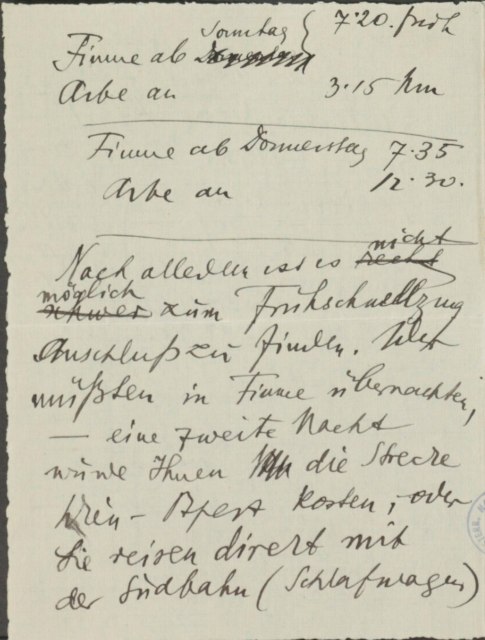 Sonntag 7·20. früh
Fiume ab Donnerstag
Arbe an 3·15 Nm
Fiume ab Donnerstag 7·35
Arbe an 12·30.
nicht
Nach alledem ist es recht
möglich
schwer zum Frühschnellzug
Anschluß zu finden. Wir
müßten in Fiume übernachten,
— eine zweite Nacht
würde Ihnen die Strecke
Wien – Bpest kosten; oder
Sie reisen direkt mit
der Südbahn (Schlafwagen)